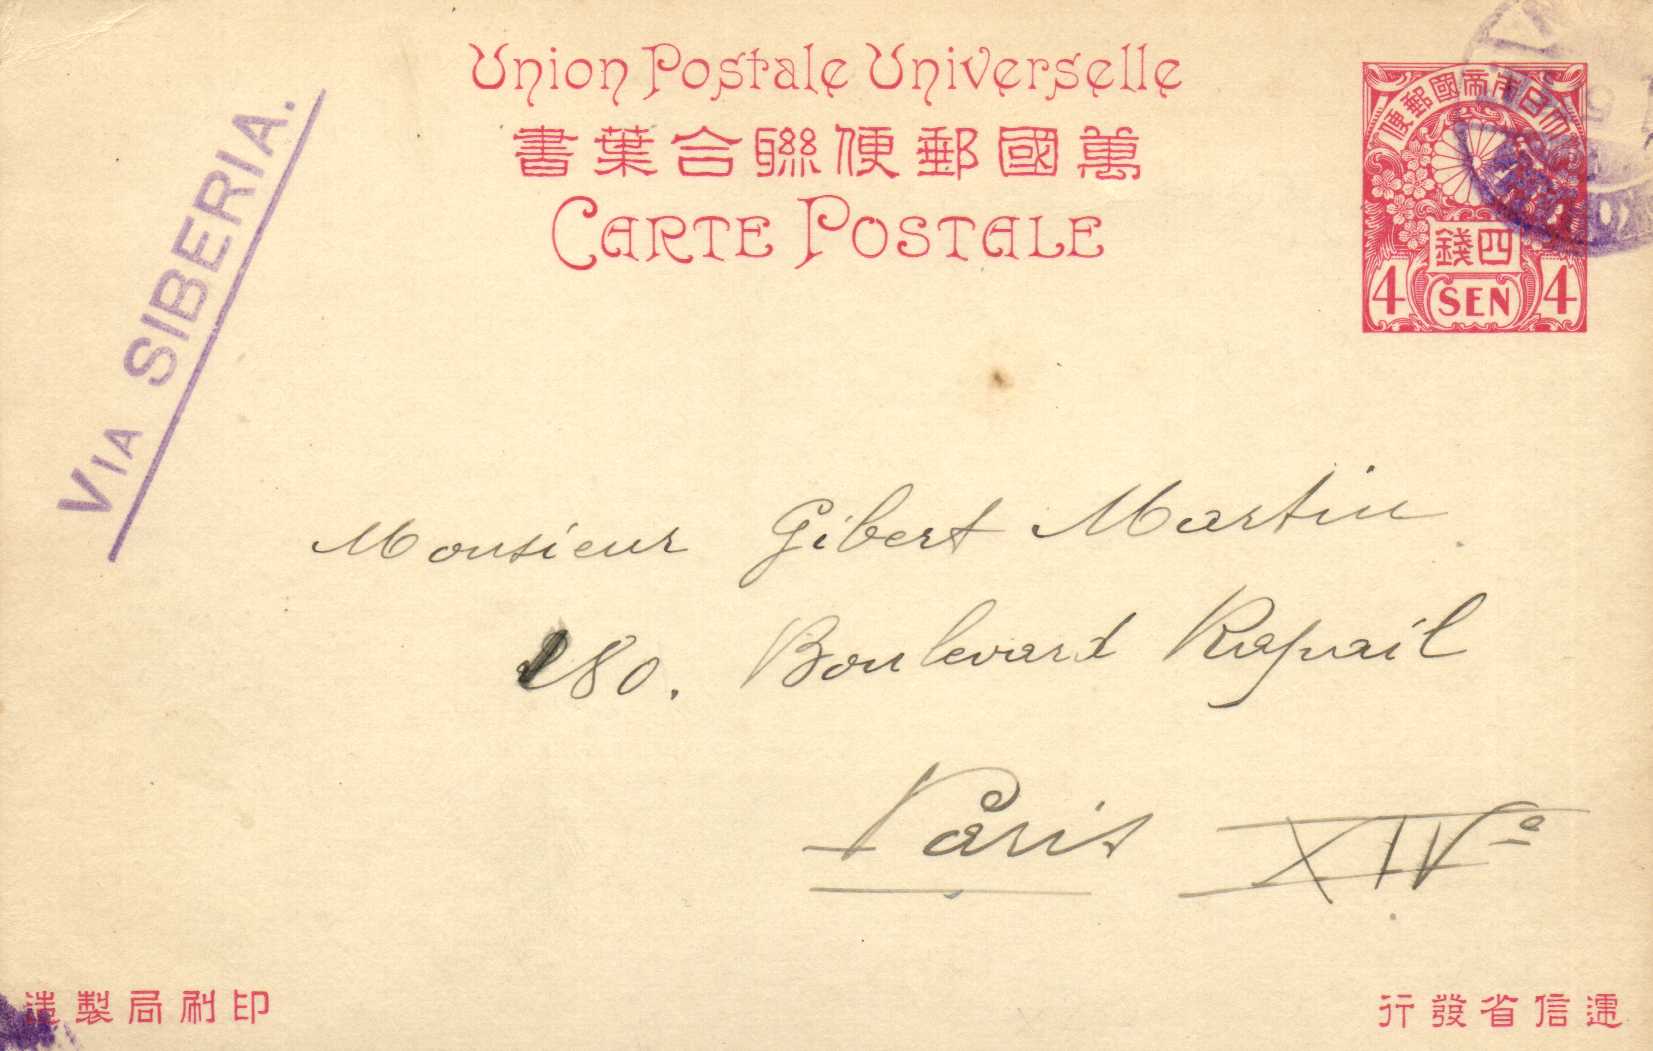 Union Postale Universelle
書葉合聯便郵國萬
CARTE POSTALE
便郵國帝本日大
錢四
4 SEN 4
VIA SIBERIA.
Monsieur Gibert Martin
280. Boulevard Raspail
Paris XIVe
造製局刷印
行發省信遞